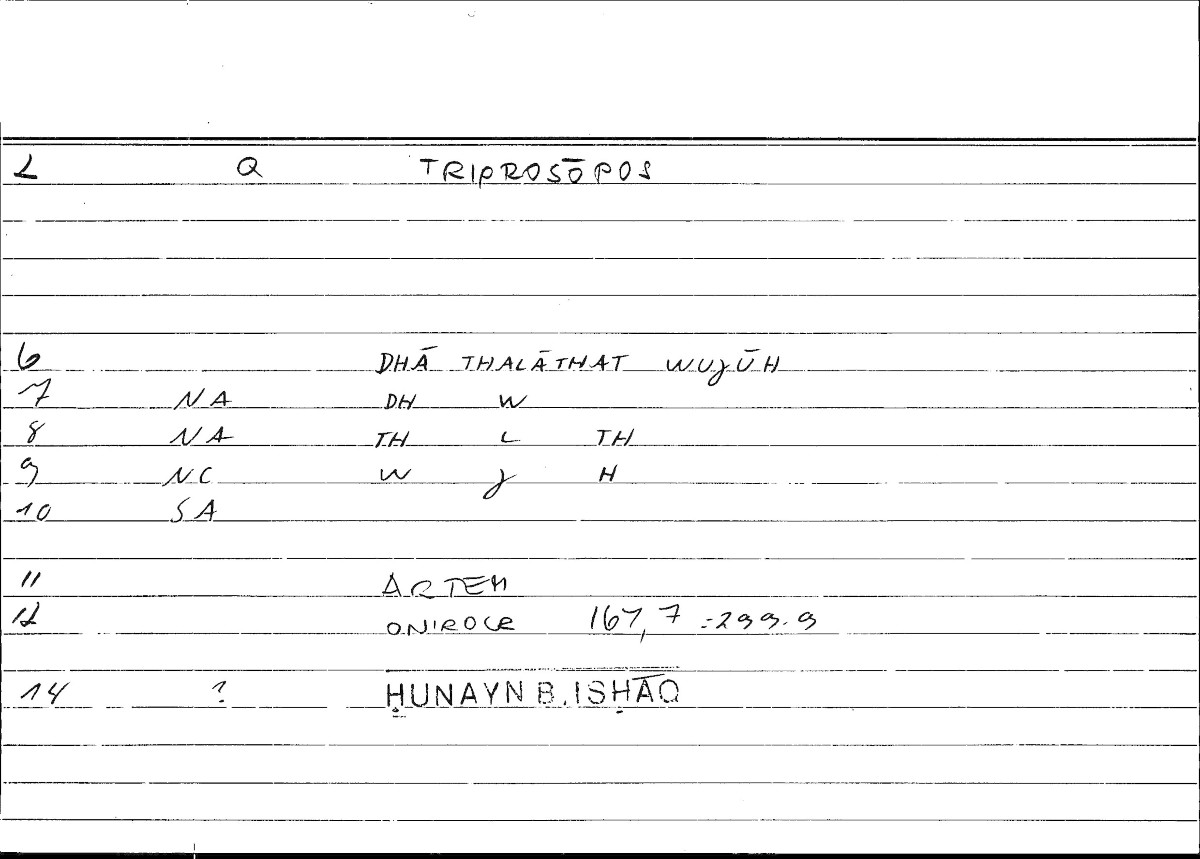 2 Q TRIPROSŌPOS
6 DHĀ THALĀTHAT WUJŪH
7 NA DH W
8 NA TH L TH
9 NC W J H
10 SA
11 ARTEM
12 ONIROCR 167,7 =299.9
14 ? ḤUNAYN B. ISḤĀQ